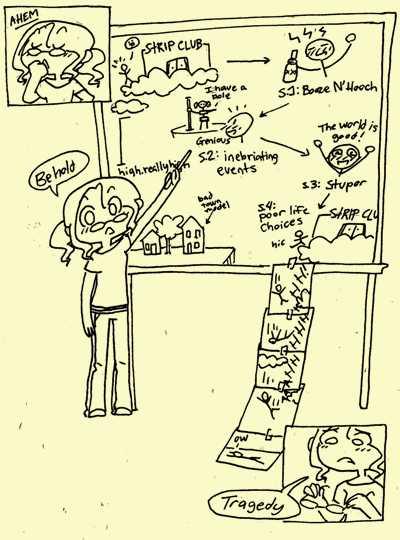 AHEM
STRIP CLUB
S.1: Booze N' Hooch
I have a
pole
Genious
S.2: inebriating
events
The world is
good!
S.3: Stupor
Behold
high, really high
bad
town
model
S.4:
poor life
choices
STRIP CLU
hic
OW
Tragedy